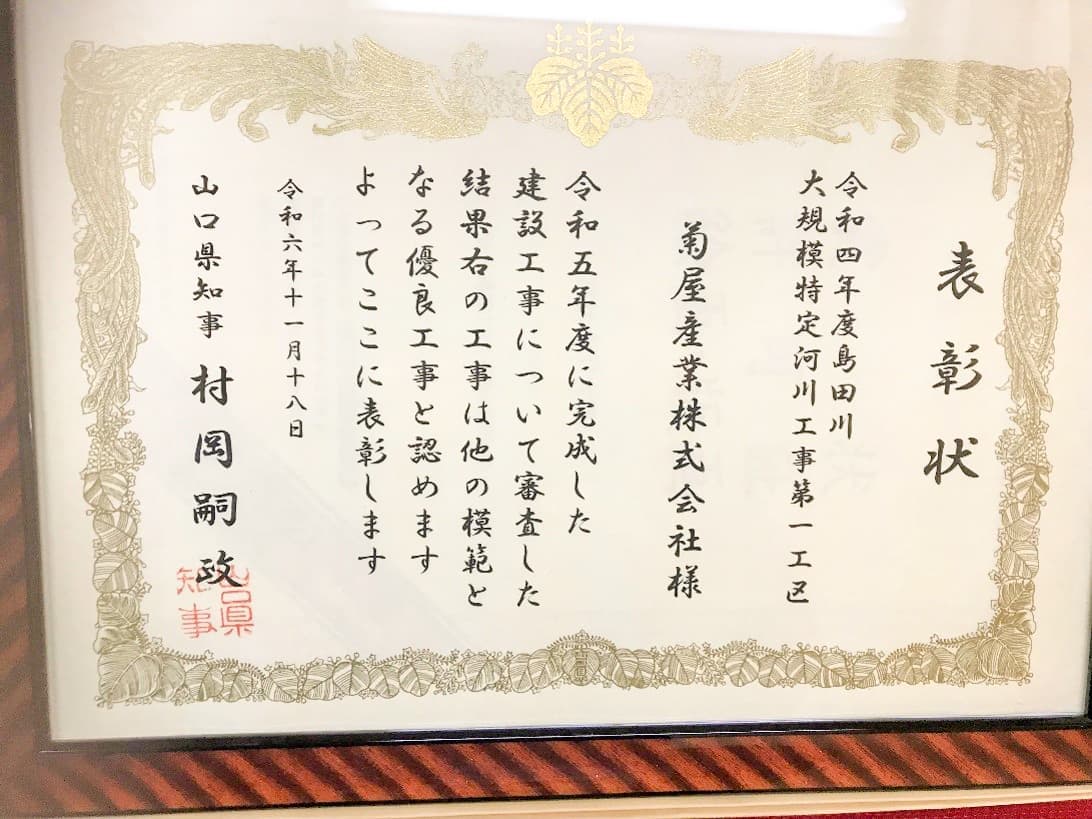 表彰状
令和四年度島田川
大規模特定河川工事第一工区
菊屋産業株式会社様
令和五年度に完成した
建設工事について審査した
結果右の工事は他の模範と
なる優良工事と認めます
よってここに表彰します
令和六年十一月十八日
山口県知事 村岡嗣政
山口県
知事